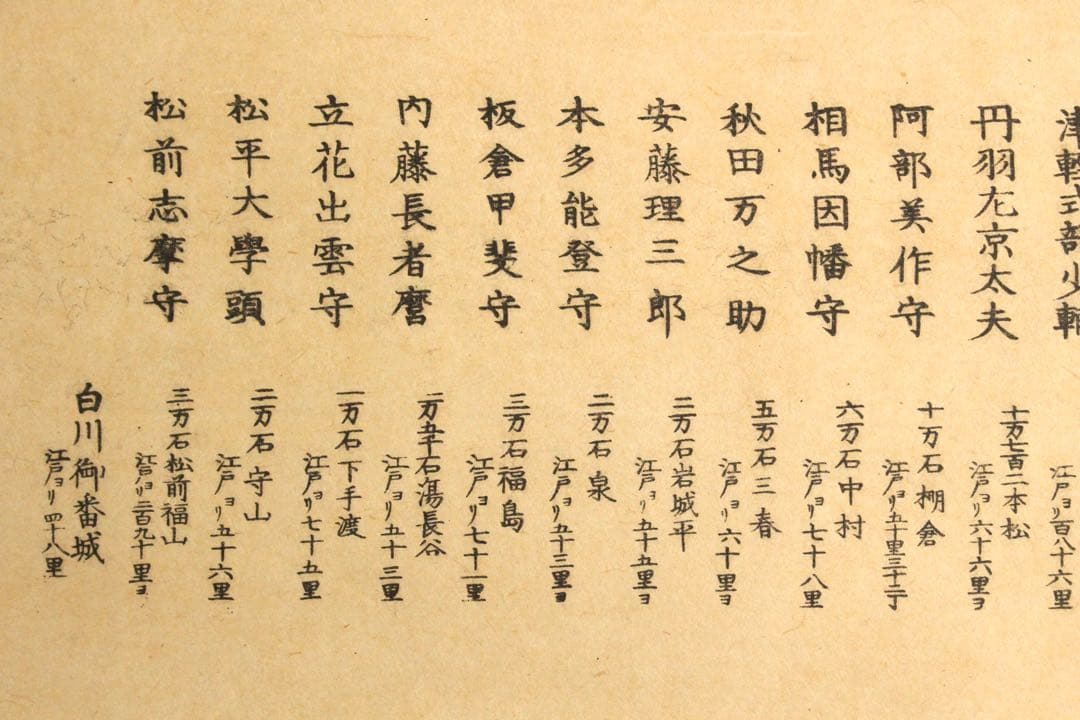 津軽式部少輔
江戸ヨリ百八十六里
丹羽左京太夫
十万七百二本松
江戸ヨリ六十六里ヨ
阿部美作守
十万石棚倉
江戸ヨリ五十里三十二丁
相馬因幡守
六万石中村
江戸ヨリ七十八里
秋田万之助
五万石三春
江戸ヨリ六十里ヨ
安藤理三郎
二万石岩城平
江戸ヨリ五十五里ヨ
本多能登守
二万石泉
江戸ヨリ五十三里ヨ
板倉甲斐守
三万石福島
江戸ヨリ七十一里
内藤長者麿
一万五千石湯長谷
江戸ヨリ五十三里
立花出雲守
一万石下手渡
江戸ヨリ七十五里
松平大學頭
二万石守山
江戸ヨリ五十六里
松前志摩守
三万石松前福山
江戸ヨリ二百九十里ヨ
白川御番城
江戸ヨリ四十八里